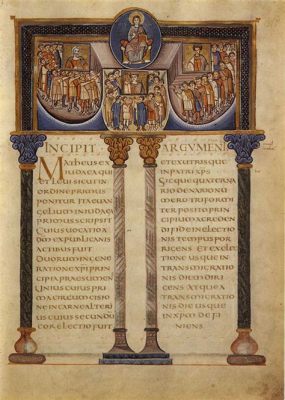 INCIPIT
Matheus ex
iudaea qui
et levi sicut in
ordine primus
ponitur ita euan
gelium in iudaea
primus scripsit
cuius uocatio a
dm ex publicanis
actibus fuit
duorum in gene
ratione xpi prin
cipia praesumens
unius cuius pri
ma circumcisio
ne in carne alteri
us cuius secundu
cor electio fuit
ARGVMENT
et ex utrisque
in patrib xps
sicque quaterna
rio denario nu
mero triformi
ter posito prin
cipium a creden
di fide in electio
nis tempus por
rigens et ex electi
one usque in
transmigratio
nis diem diri
gens atque a
transmigratio
nis die usque
in xpm defi
niens